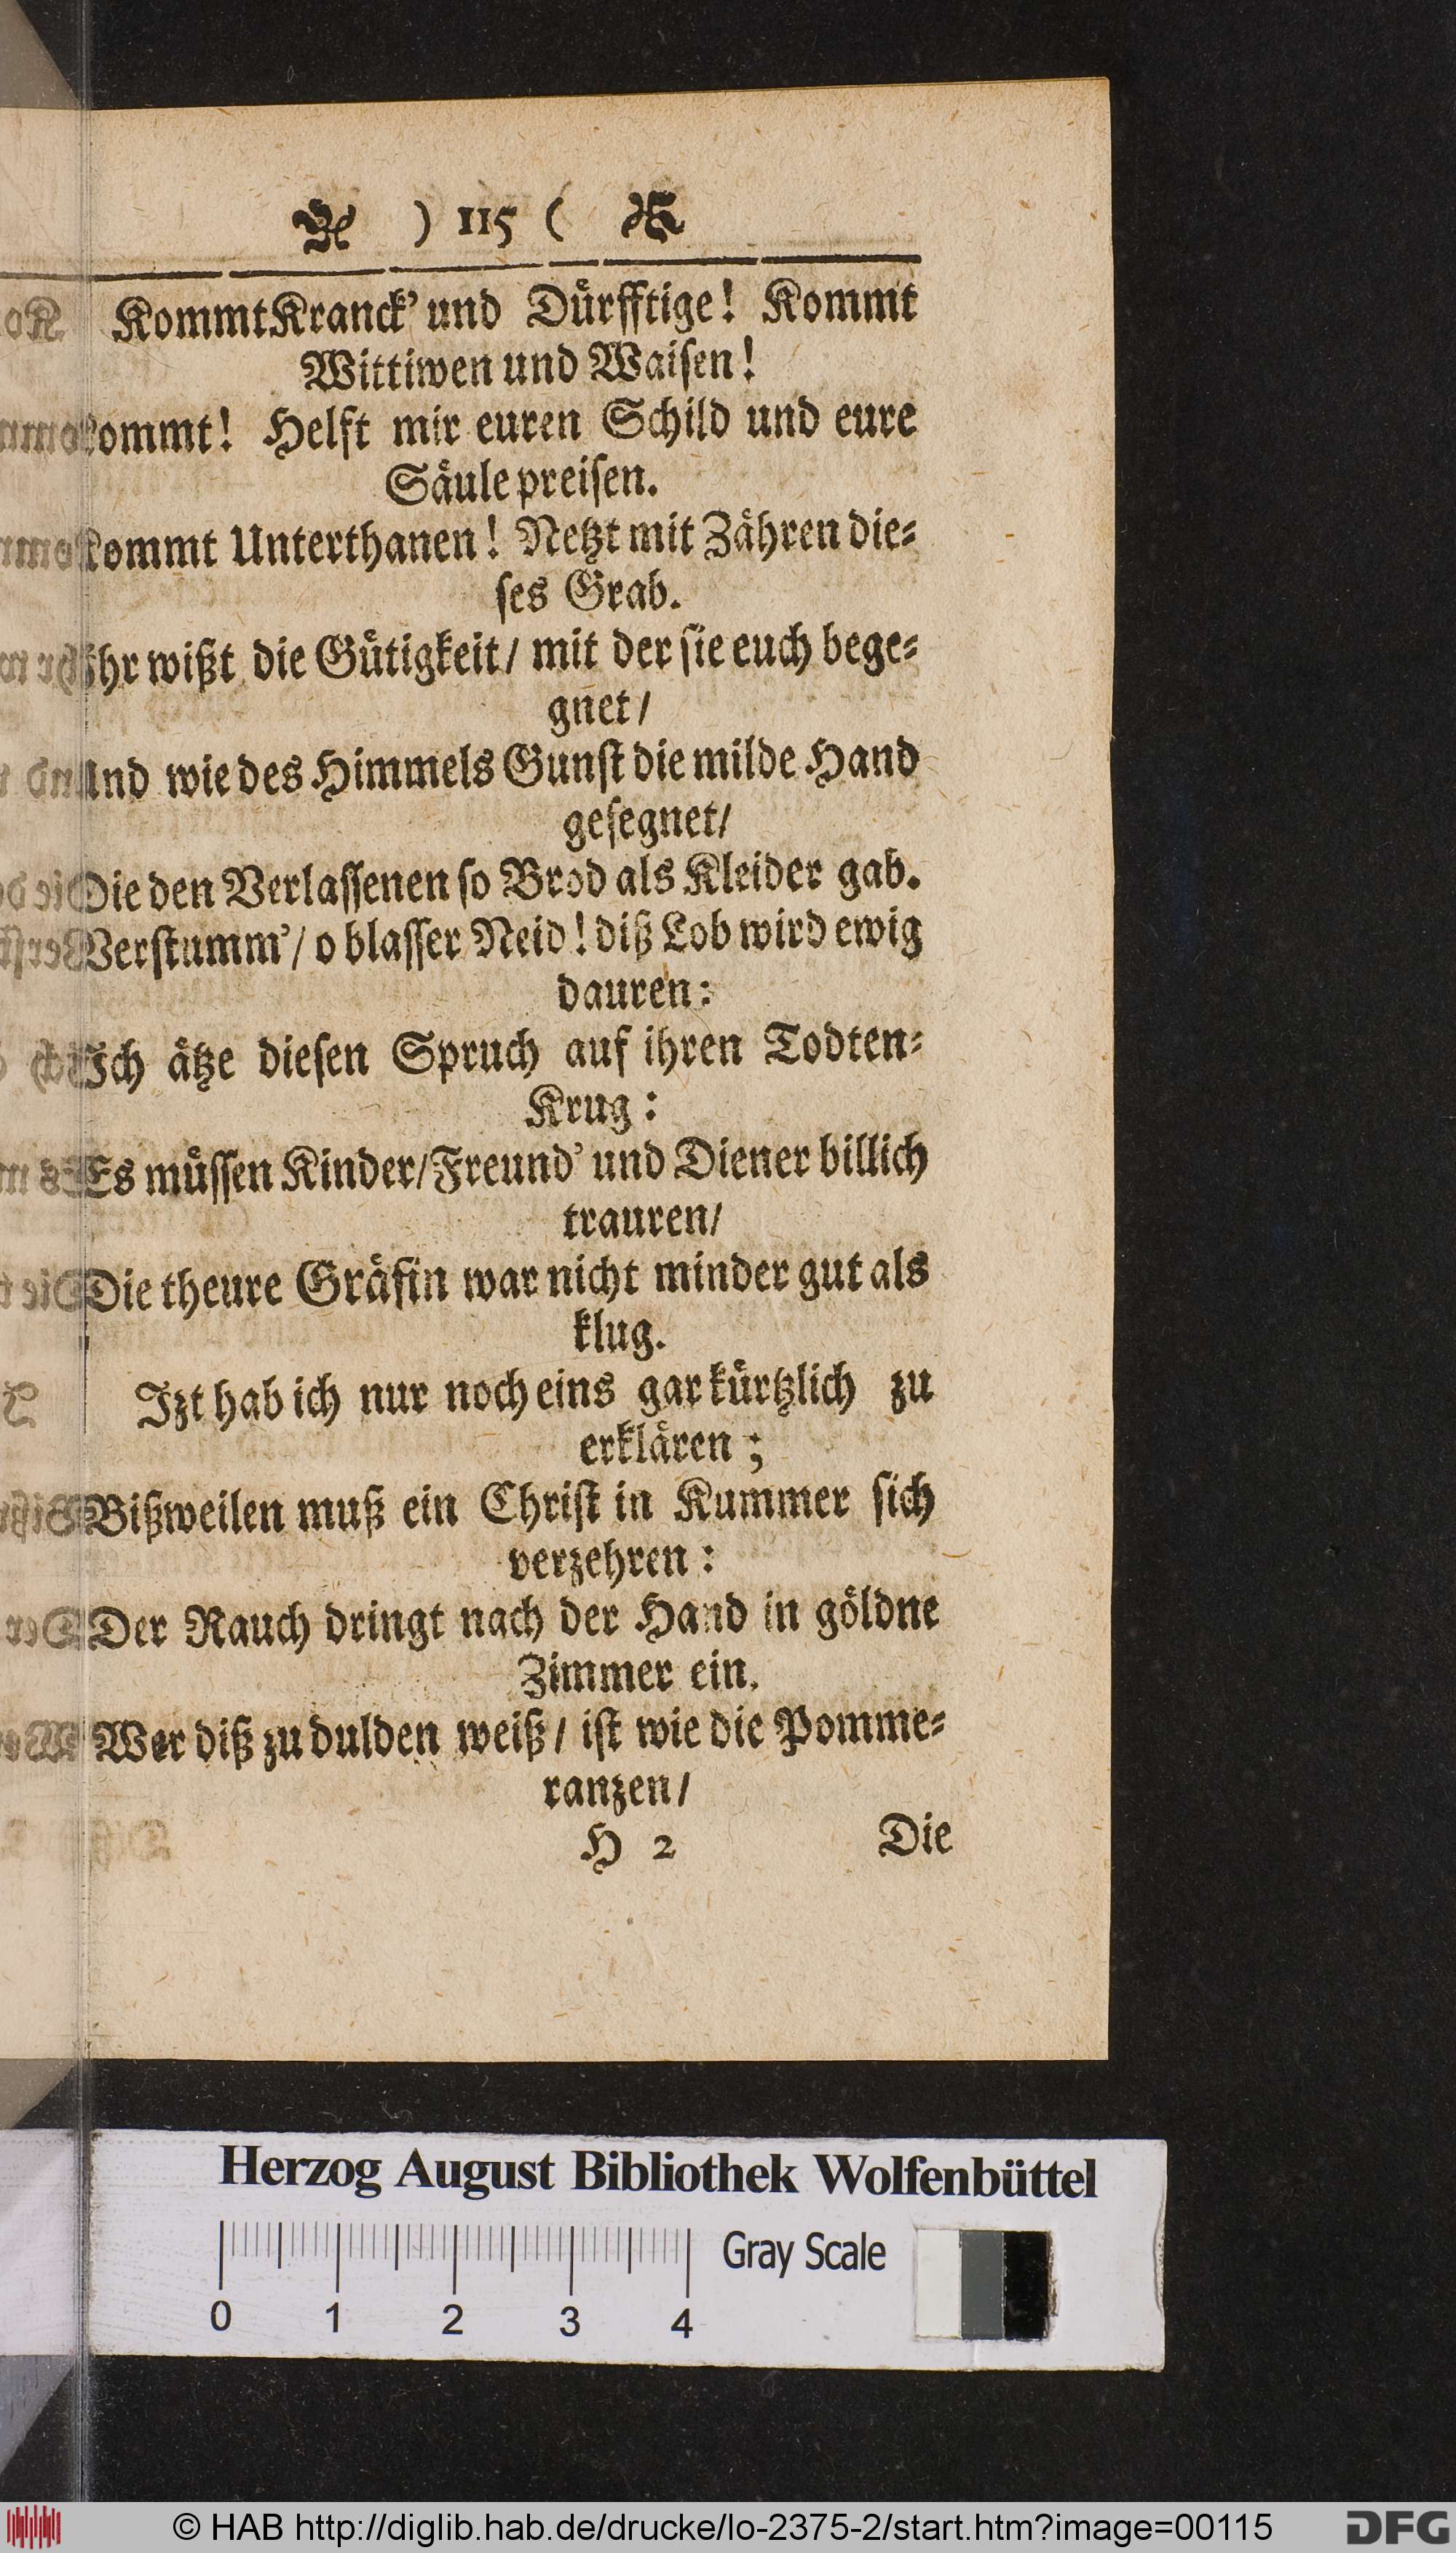 ) 115 (
Kommt Kranck' und Dürfftige! Kommt
Wittiwen und Waisen!
kommt! Helft mir euren Schild und eure
Säule preisen.
kommt Unterthanen! Netzt mit Zähren die⸗
ses Grab.
Ihr wißt die Gütigkeit/ mit der sie euch bege⸗
gnet/
Und wie des Himmels Gunst die milde Hand
gesegnet/
Die den Verlassenen so Brod als Kleider gab.
Verstumm'/ o blasser Neid! diß Lob wird ewig
dauren:
Ich ätze diesen Spruch auf ihren Todten⸗
Krug:
Es müssen Kinder/ Freund' und Diener billich
trauren/
Die theure Gräfin war nicht minder gut als
klug.
Izt hab ich nur noch eins gar kürtzlich zu
erklären;
Bißweilen muß ein Christ in Kummer sich
verzehren:
Der Rauch dringt nach der Hand in göldne
Zimmer ein.
Wer diß zu dulden weiß/ ist wie die Pomme⸗
ranzen/
H 2 Die
Herzog August Bibliothek Wolfenbüttel
Gray Scale
0 1 2 3 4
© HAB http://diglib.hab.de/drucke/lo-2375-2/start.htm?image=00115
DFG